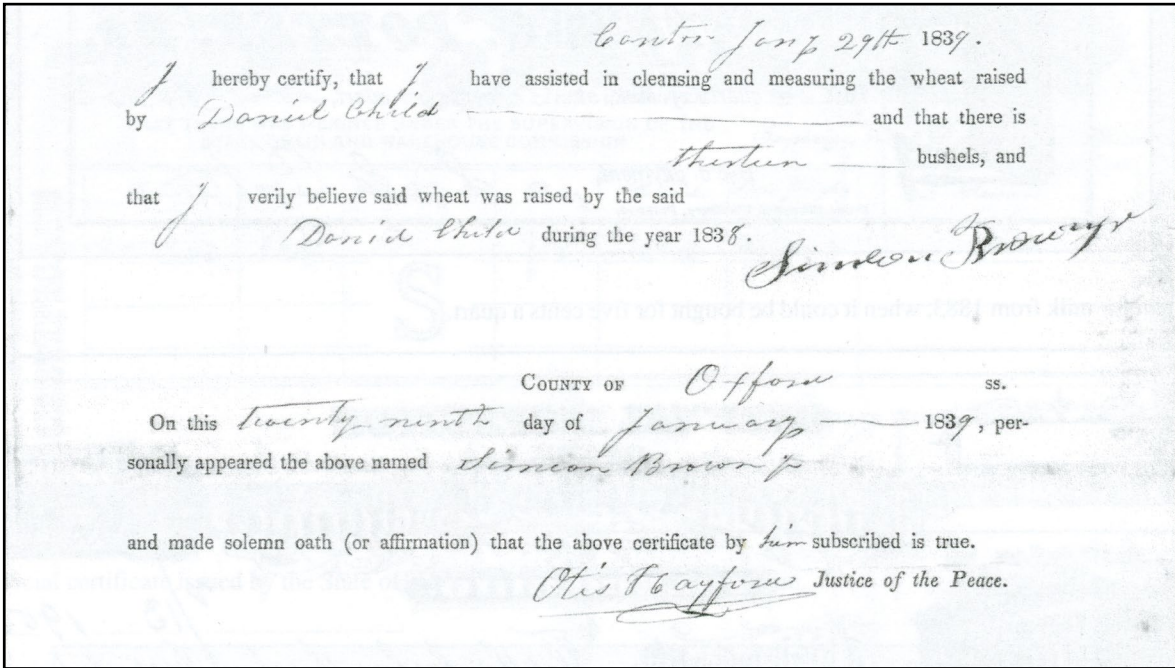 Canton Jany 29th 1839.
I hereby certify, that I have assisted in cleansing and measuring the wheat raised
by Daniel Child and that there is
thirteen bushels, and
that I verily believe said wheat was raised by the said
Daniel Child during the year 1838.
Simeon
milk from 1883, when it could be bought for five cents a quart.
COUNTY OF Oxford ss.
On this twenty ninth day of January 1839, per-
sonally appeared the above named Simeon
and made solemn oath (or affirmation) that the above certificate by him subscribed is true.
Otis Hayford Justice of the Peace.